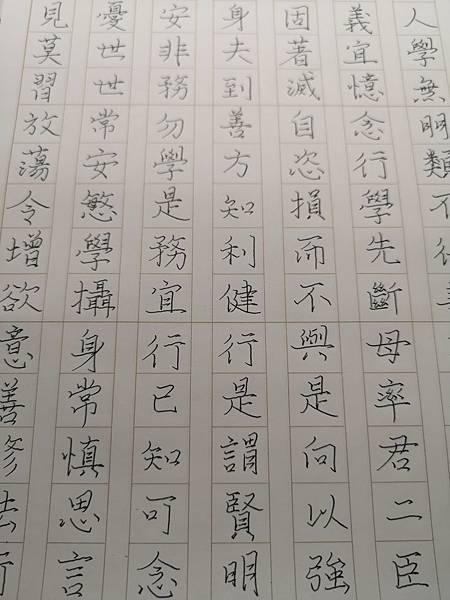 人學無明類不
義宜憶念行學先斷母率君二臣
固著滅自恣損而不與是向以強
身夫到善方知利健行是謂賢明
安非務勿學是務宜行已知可念
憂世世常安慜學攝身常慎思言
見莫習放蕩令增欲意善修法行